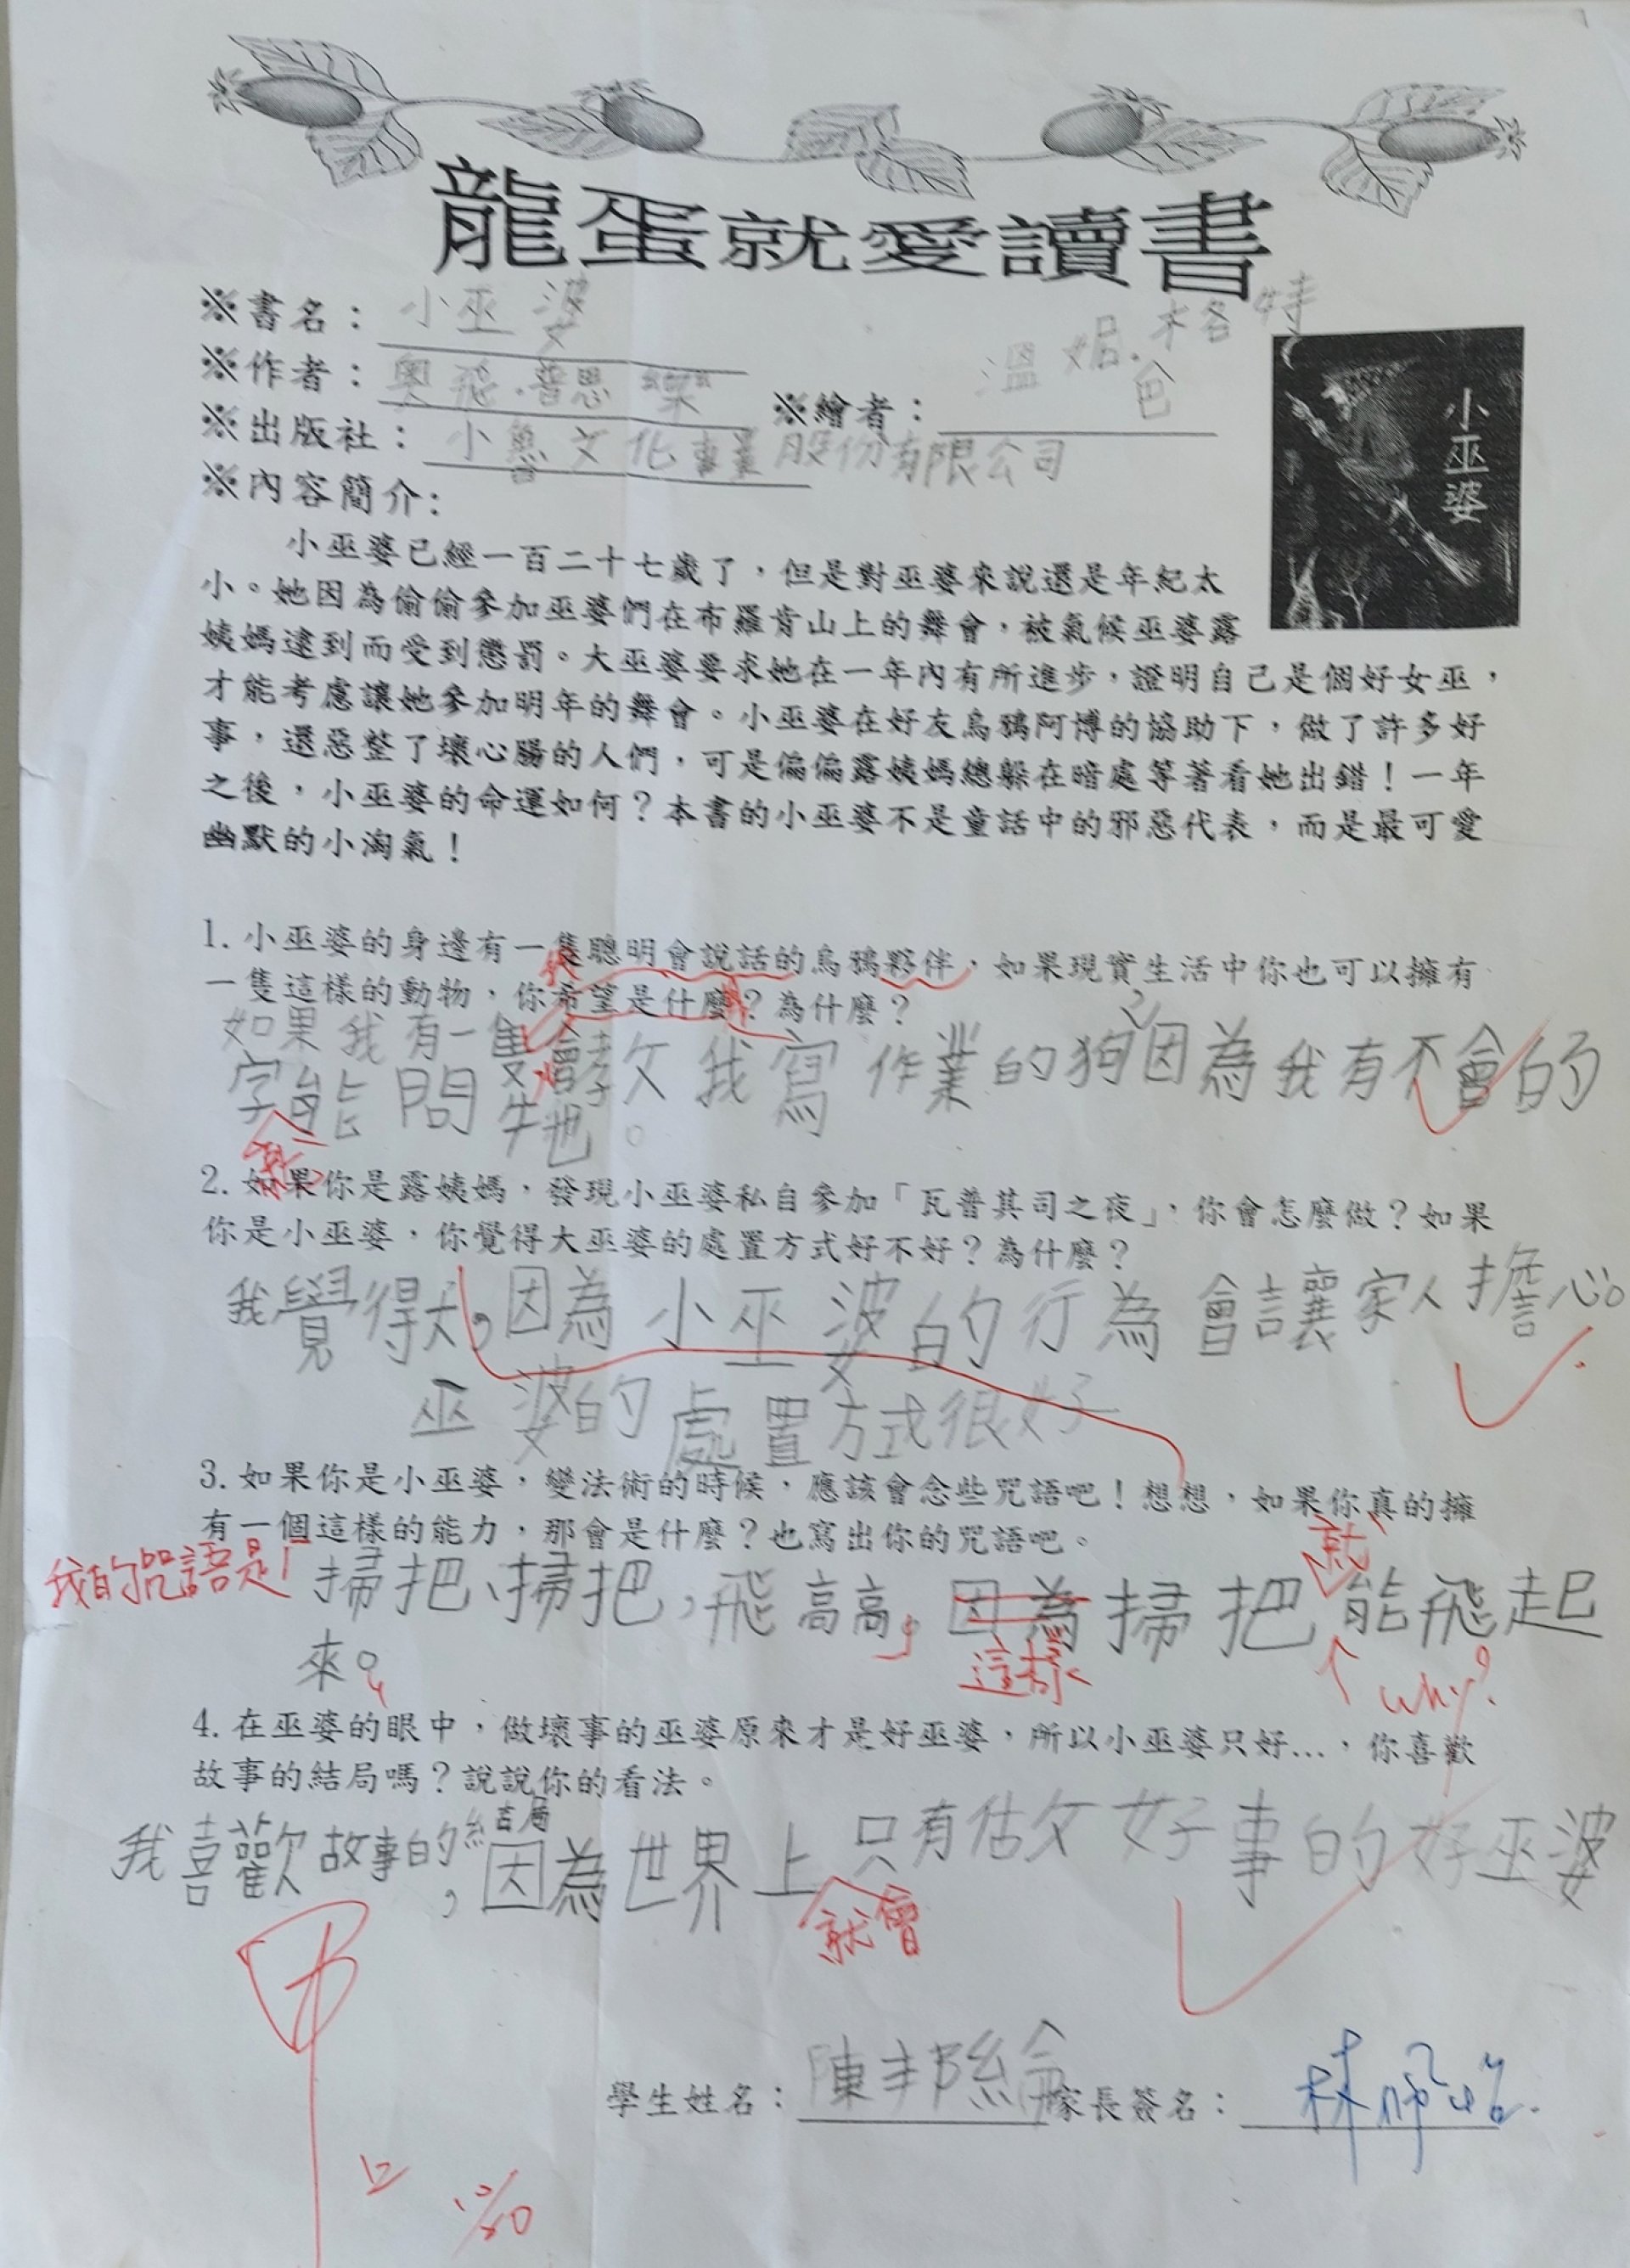 龍蛋就愛讀書
※書名：小巫婆
※作者：奧飛．普思樂
※繪者：溫妮．格特包
※出版社：小魯文化事業股份有限公司
小巫婆
※內容簡介：
小巫婆已經一百二十七歲了，但是對巫婆來說還是年紀太
小。她因為偷偷參加巫婆們在布羅肯山上的舞會，被氣候巫婆露
姨媽逮到而受到懲罰。大巫婆要求她在一年內有所進步，證明自己是個好女巫，
才能考慮讓她參加明年的舞會。小巫婆在好友烏鴉阿博的協助下，做了許多好
事，還惡整了壞心腸的人們，可是偏偏露姨媽總躲在暗處等著看她出錯！一年
之後，小巫婆的命運如何？本書的小巫婆不是童話中的邪惡代表，而是最可愛
幽默的小淘氣！
1. 小巫婆的身邊有一隻聰明會說話的烏鴉夥伴，如果現實生活中你也可以擁有
一隻這樣的動物，你希望是什麼？為什麼？
如果我有一隻會教我寫作業的狗，因為我有不會的
字能問牠。
就
2. 如果你是露姨媽，發現小巫婆私自參加「瓦普其司之夜」，你會怎麼做？如果
你是小巫婆，你覺得大巫婆的處置方式好不好？為什麼？
我覺得大，因為小巫婆的行為會讓家人擔心。
巫婆的處置方式很好
3. 如果你是小巫婆，變法術的時候，應該會念些咒語吧！想想，如果你真的擁
有一個這樣的能力，那會是什麼？也寫出你的咒語吧。
就
我的咒語是！掃把、掃把，飛高高，因為掃把能飛起
來。
這樣
why?
4. 在巫婆的眼中，做壞事的巫婆原來才是好巫婆，所以小巫婆只好…，你喜歡
故事的結局嗎？說說你的看法。
我喜歡故事的結局，因為世界上只有做好事的好巫婆
就會
甲
上
學生姓名：陳邦綸
家長簽名：林